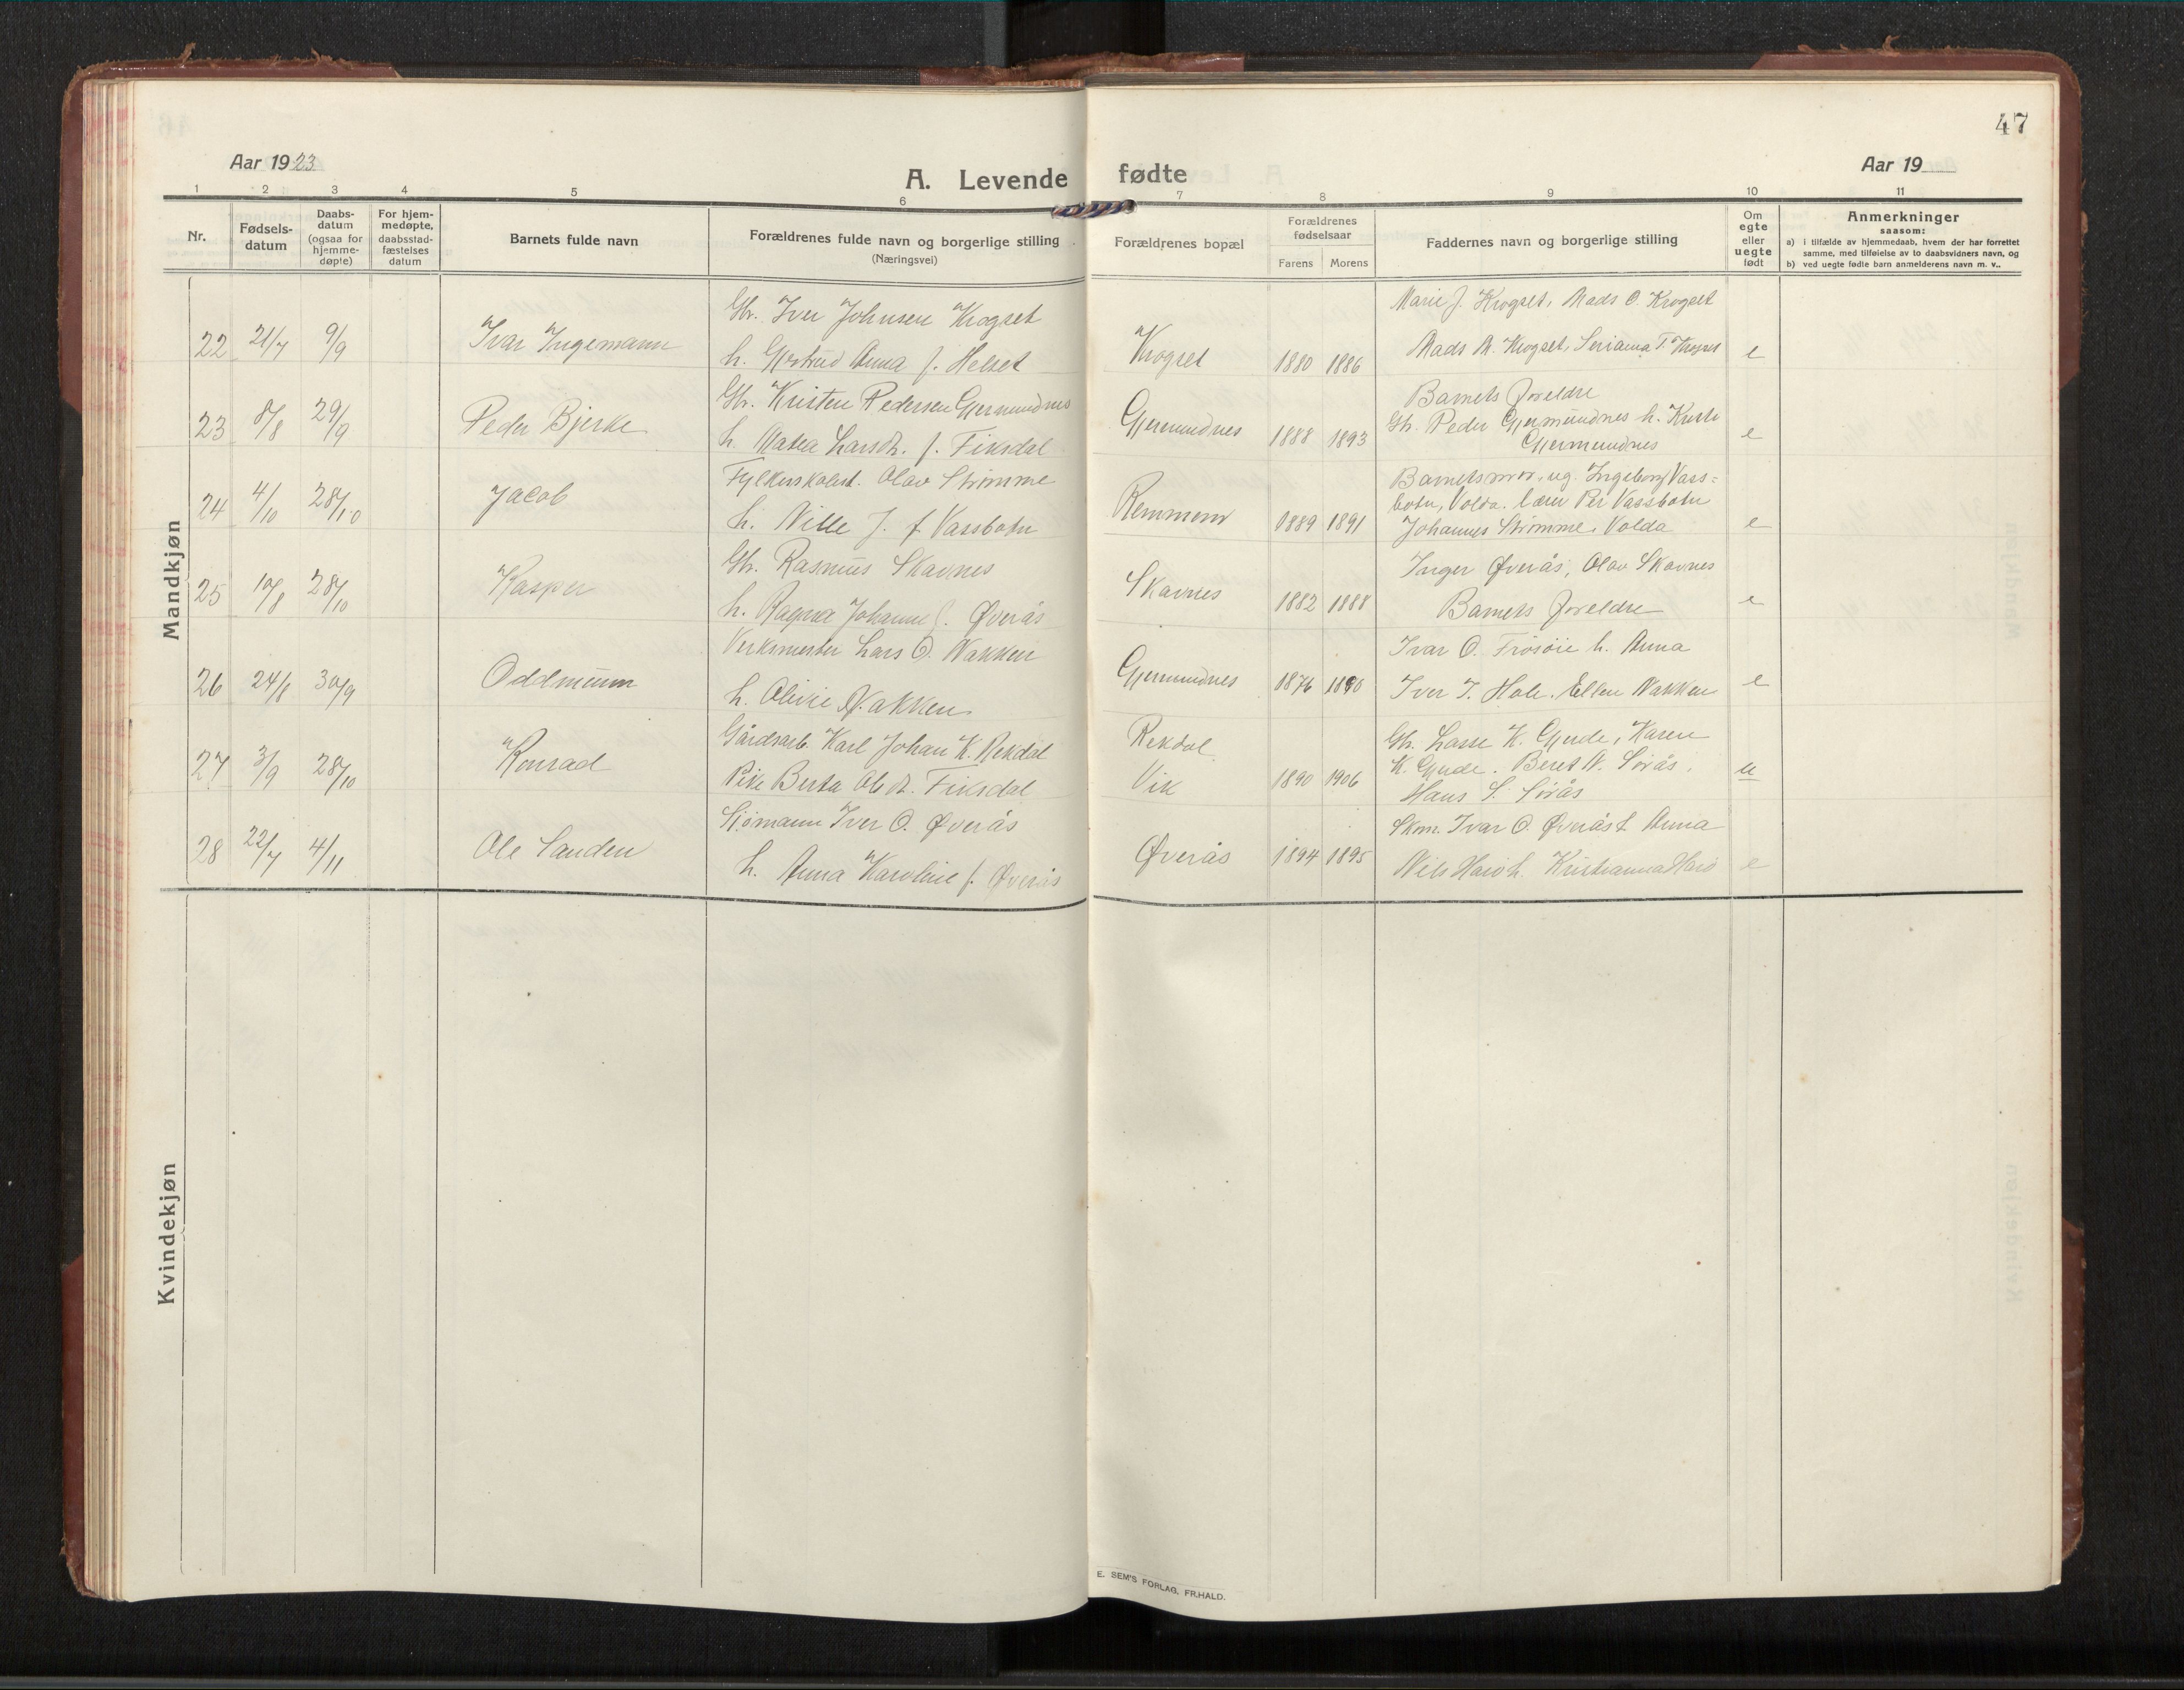 47
Aar 1923
A. Levende fødte
Aar 19
1 2 3 4 5 6 7 8 9 10 11
Nr.
Fødsels-
datum
Daabs-
datum
(ogsaa for
hjemme-
døpte)
For hjem-
medøpte,
daabsstad-
fæstelses
datum
Barnets fulde navn
Forældrenes fulde navn og borgerlige stilling
(Næringsvei)
Forældrenes bopæl
Forældrenes
fødselsaar
Farens Morens
Faddernes navn og borgerlige stilling
Om
egte
eller
uegte
født
Anmerkninger
saasom:
a) i tilfælde av hjemmedaab, hvem der har forrettet
samme, med tilføielse av to daabsvidners navn, og
b) ved uegte fødte barn anmelderens navn m. v..
Mandkjøn
22 21/7 9/9 Ivar Ingemann
Gbr. Iver Johnsen Krogset
h. Gjertrud Anna f. Helset
Krogset 1880 1886
Marie J. Krogset, Mads O. Krogset
Mads M. Krogset, Serianna T. Krogset
e
23 8/8 29/9 Peder Bjerke
Gbr. Kristen Pedersen Gjermundnes
h. Matea Larsdt. f. Fiksdal
Gjermundnes 1888 1893
Barnets foreldre
Gb. Peder Gjermundnes h. Kirsti
Gjermundnes
e
24 4/10 28/10 Jacob
Fylkesskolest. Olav Strømme
h. Nille J. f Vassbotn
Remmem 1889 1891
Barnets mor, ug. Ingeborg Vass=
botn, Volda. lærer Per Vassbotn
Johannes Strømme, Volda
e
25 10/8 28/10 Kasper
Gbr. Rasmus Skavnes
h. Ragna Johanne f. Øverås
Skavnes 1882 1888
Inger Øverås, Olav Skavnes
Barnets foreldre
e
26 24/8 30/9 Oddmunn
Verksmester Lars O. Nakken
h. Olivie Nakken
Gjermundnes 1876
Ivar O. Frøsøie h. Anna
Iver T. Hole. Ellen Nakken
e
27 3/9 28/10 Konrad
Gårdsarb. Karl Johan K. Rekdal
Pike Berta Olsdt. Fiksdal
Rekdal
Vik 1890 1906
Gb. Lasse K. Gjerde, Karen
K. Gjerde. Beret N. Sørås.
Hans S. Sørås
u
28 22/7 4/11 Ole Sanden
Sjømann Iver O. Øverås
h. Anna Karoline f. Øverås
Øverås 1894 1895
Skm. Ivar O. Øverås h. Anna
Nils Harö h. Kristianna Harö
e
Kvindekjøn
E. SEM'S FORLAG, FR.HALD.